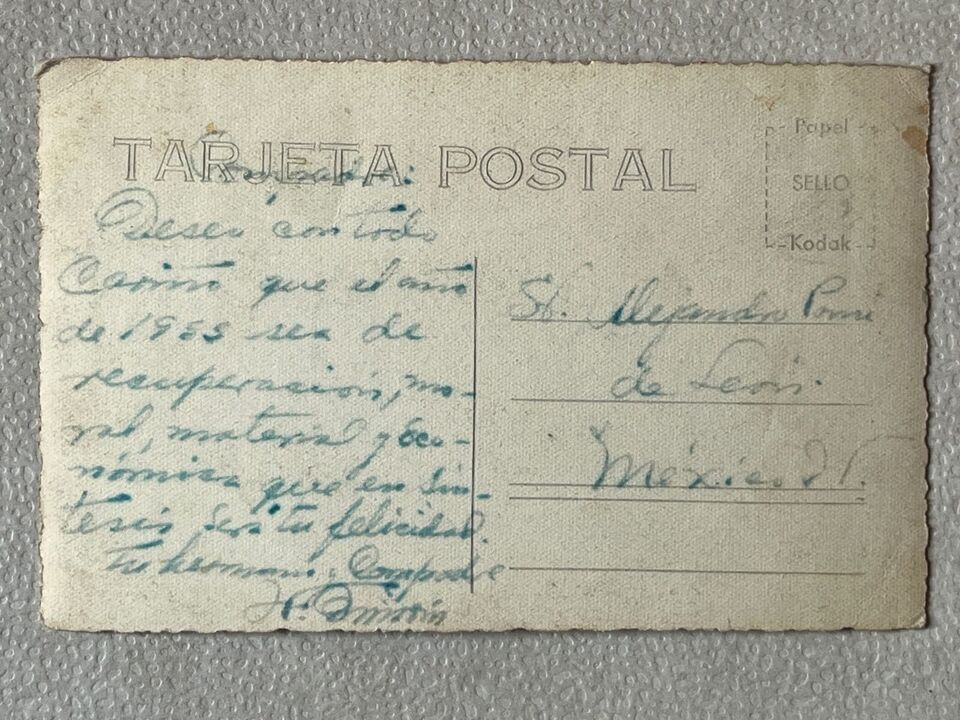 TARJETA POSTAL
Papel
SELLO
Kodak
Deseo con todo
Cariño que el año
de 1953 sea de
recuperación, mo-
ral, material y eco-
nómica que en sín-
tesis será tu felicidad.
Tu hermano y Compadre
Sr. Alejandro
de León.
México D.F.